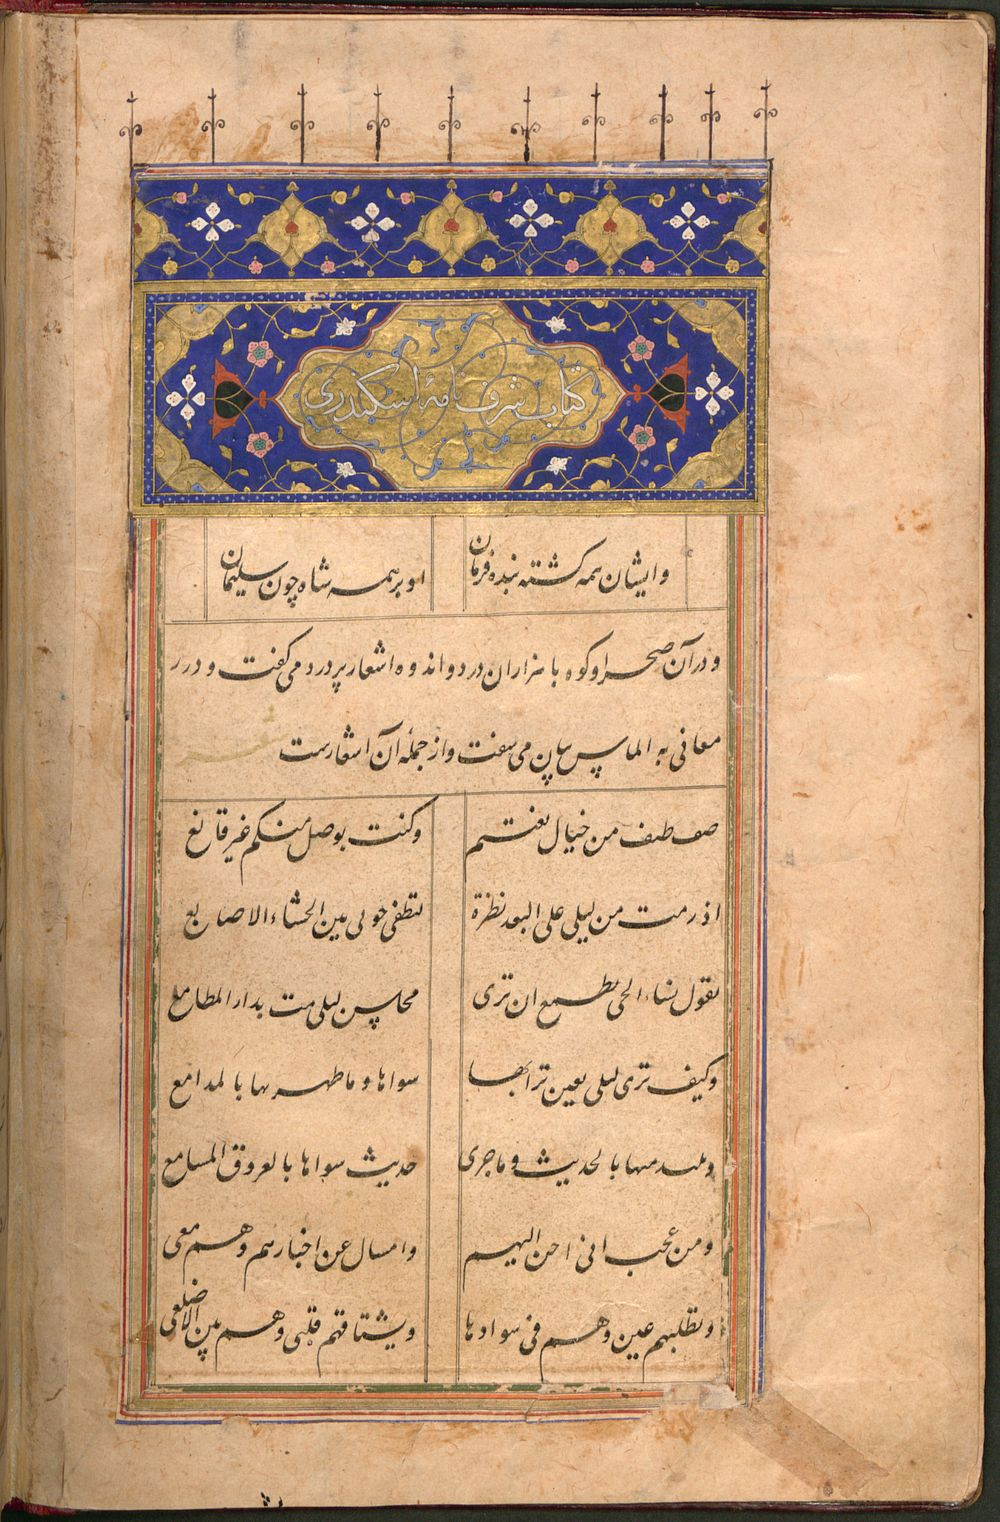 کتاب شرف نامهٔ اسکندری
وایشان همه کشته بنده فرمان او بر همه شاه چون سلیمان
و در آن صحرا و کوه با هزاران درد و اندوه اشعار پر درد می کفت و درر
معانی به الماس بیان می سفت و از جمله آن اشعارست شعر
من خیال وکنت بوصل منکم غیر قانع
اذ رمت من لیلی علی البعد نظرة لتطفی جوی بین الحشاء الاصابع
تقول نساء الحی تطمع ان تری محاسن لیلی مت بداء المطامع
وکیف تری لیلی بعین تری بها سواها وما طهر بها بالمدامع
وتلتذ منها بالحدیث وما جری حدیث سواها بالعروق المسامع
ومن عجب انی احن الیهم واسال عن اخبارهم وهم معی
وتطلبهم عین وهم فی سوادها ویشتاقهم قلبی وهم بین الاضلعی